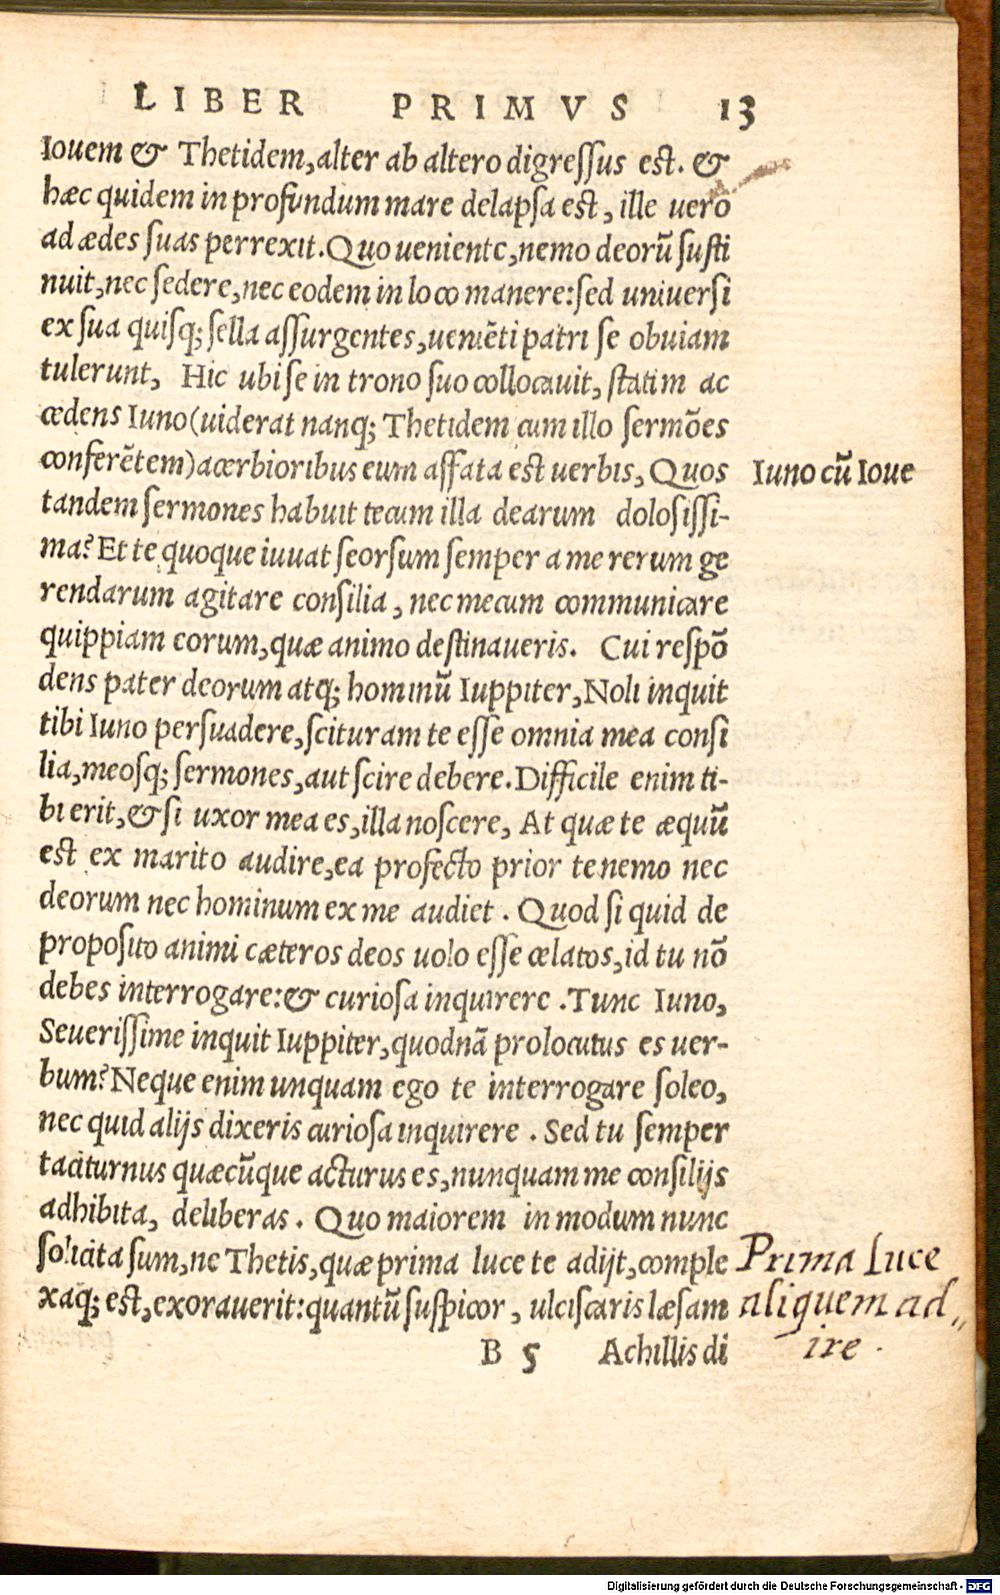 LIBER PRIMVS 13
Iouem & Thetidem, alter ab altero digreſſus eſt. &
hæc quidem in profundum mare delapſa eſt, ille uero
ad ædes ſuas perrexit. Quo ueniente, nemo deorū ſuſti
nuit, nec ſedere, nec eodem in loco manere: ſed uniuerſi
ex ſua quiſq; ſella aſſurgentes, ueniēti patri ſe obuiam
tulerunt, Hic ubi ſe in trono ſuo collocauit, ſtatim ac
cedens Iuno (uiderat nanq; Thetidem cum illo ſermōes
conferētem) acerbioribus eum affata eſt uerbis, Quos
Iuno cū Ioue
tandem ſermones habuit tecum illa dearum doloſiſſi-
ma? Et te quoque iuuat ſeorſum ſemper a me rerum ge
rendarum agitare conſilia, nec mecum communicare
quippiam eorum, quæ animo deſtinaueris. Cui reſpō
dens pater deorum atq; hominū Iuppiter, Noli inquit
tibi Iuno perſuadere, ſcituram te eſſe omnia mea conſi
lia, meoſq; ſermones, aut ſcire debere. Difficile enim ti-
bi erit, & ſi uxor mea es, illa noſcere, At quæ te æquū
eſt ex marito audire, ea profecto prior te nemo nec
deorum nec hominum ex me audiet. Quod ſi quid de
propoſito animi cæteros deos uolo eſſe celatos, id tu nō
debes interrogare: & curioſa inquirere. Tunc Iuno,
Seueriſſime inquit Iuppiter, quodnā prolocutus es uer-
bum? Neque enim unquam ego te interrogare ſoleo,
nec quid alijs dixeris curioſa inquirere. Sed tu ſemper
taciturnus quæcūque acturus es, nunquam me conſilijs
adhibita, deliberas. Quo maiorem in modum nunc
ſolicita ſum, ne Thetis, quæ prima luce te adijt, comple
xaq; eſt, exorauerit: quantū ſuſpicor, ulciſcaris læſam
Prima Luce
aliquem ad„
ire.
B 5 Achillis di
Digitalisierung gefördert durch die Deutsche Forschungsgemeinschaft - DFG